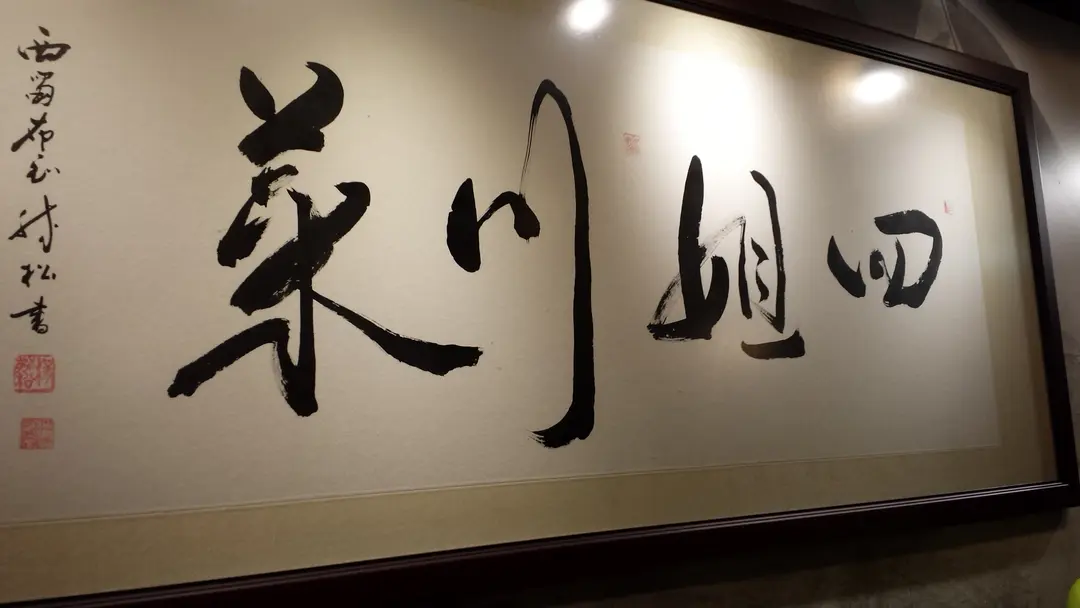 四姐川菜
西蜀布衣 松書